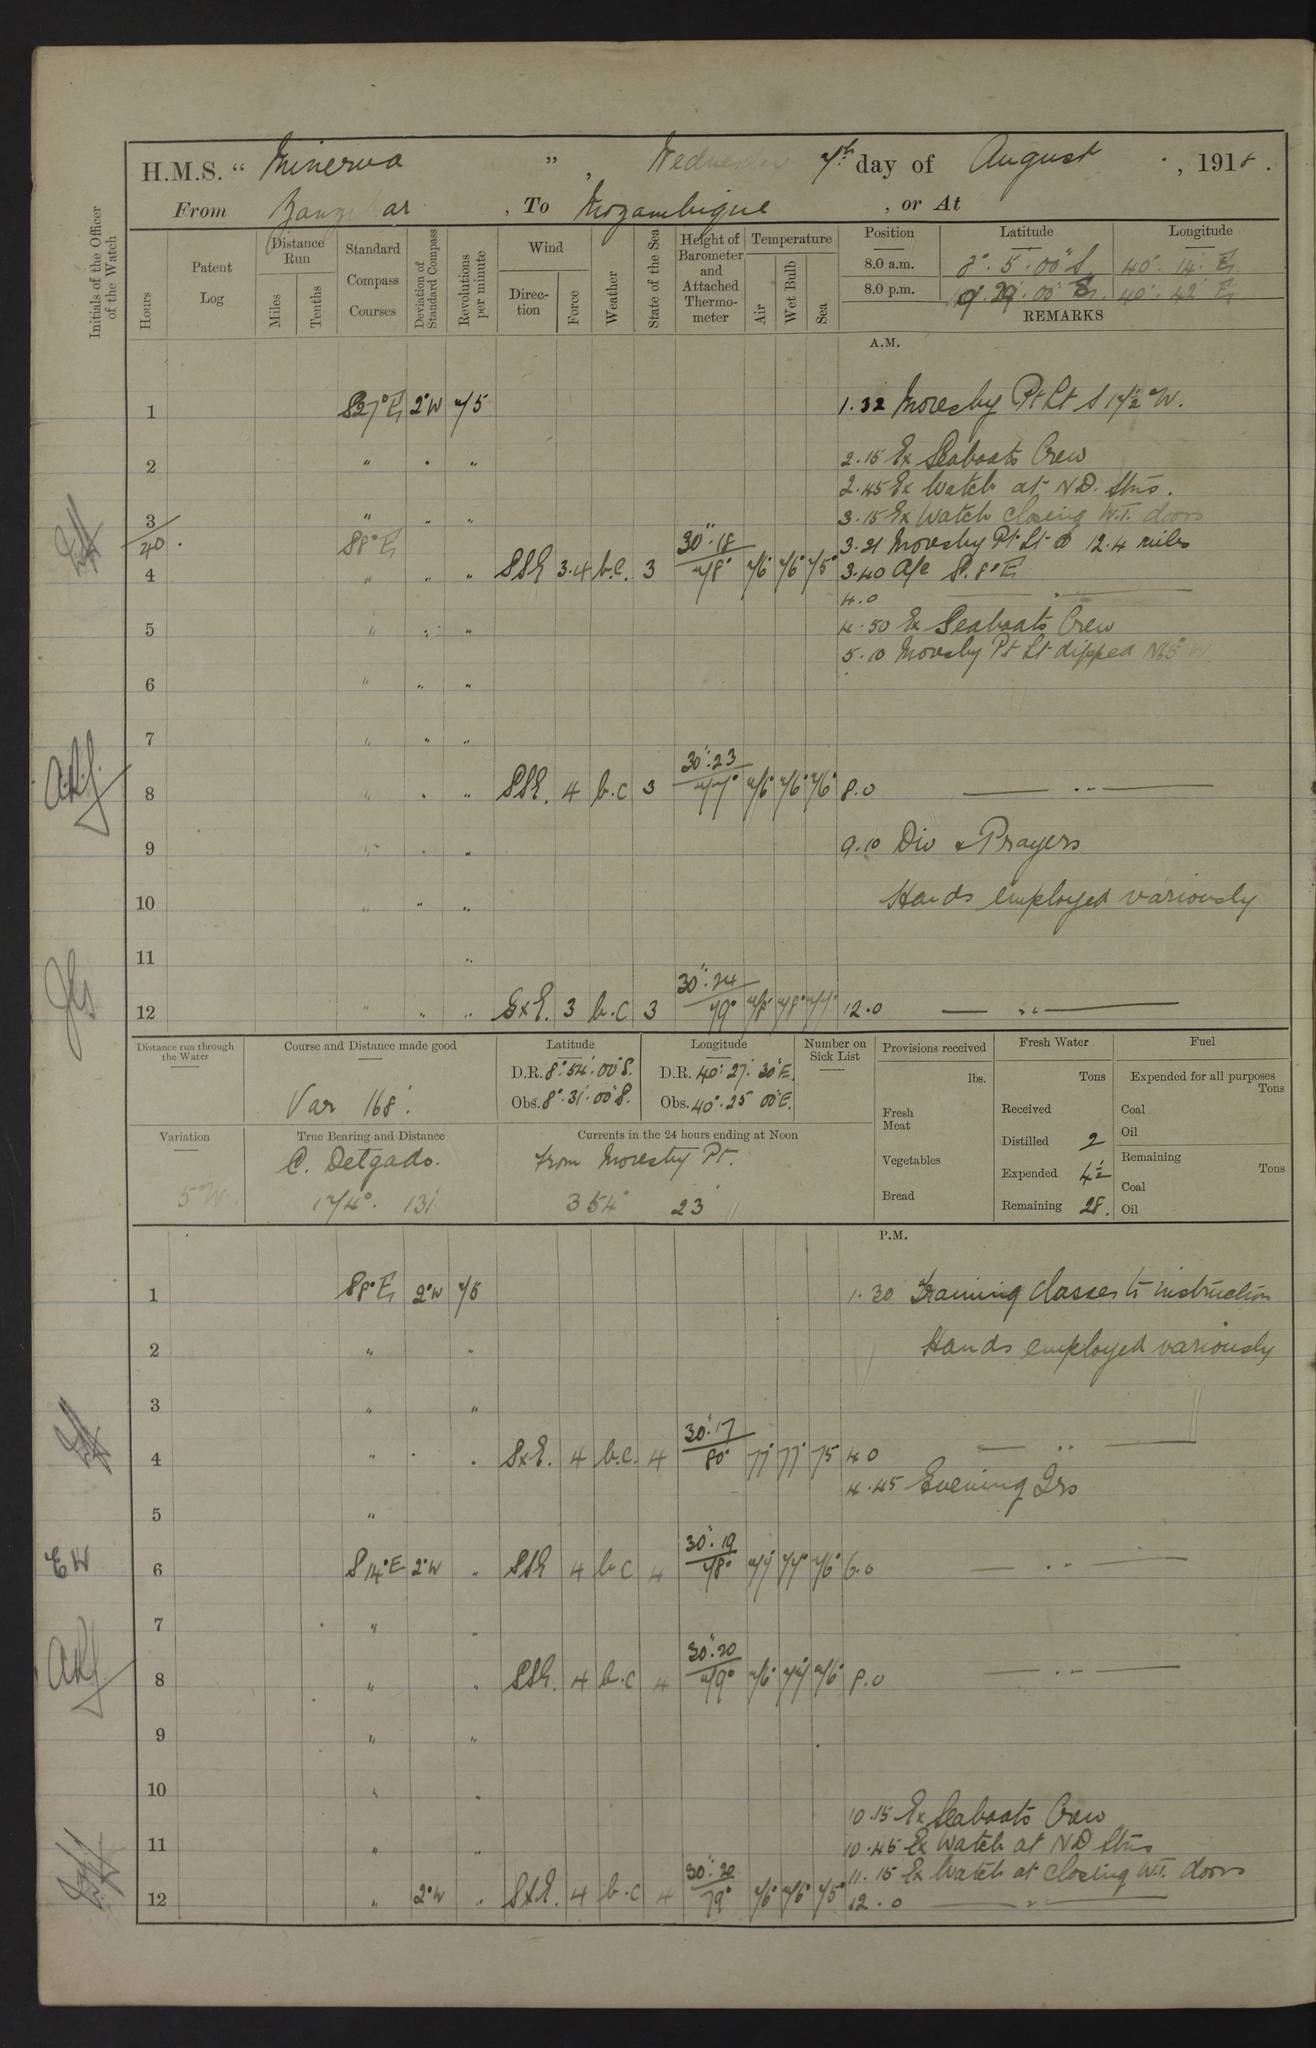 H.M.S. " Minerva ", Wednesday 7th day of August, 1918.
From Zanzibar, To Mozambique, or At
Initials of the Officer of the Watch
Hours
Patent Log
Distance Run
Miles
Tenths
Standard Compass Courses
Deviation of Standard Compass
Revolutions per minute
Wind
Direction
Force
Weather
State of the Sea
Height of Barometer and Attached Thermometer
Temperature
Air
Wet Bulb
Sea
Position Latitude Longitude
8.0 a.m. 8°. 5'. 00" S 40°. 14'. E
8.0 p.m. 9°. 29'. 00" S. 40°. 42' E
REMARKS
A.M.
1 S27°E 2°W 75 1.32 Moresby Pt Lt S 17½°W.
2 " " " 2.15 Ex Seaboats Crew
2.45 Ex Watch at N.D. Stns.
3 " " " 3.15 Ex Watch closing W.T. doors
40 S8°E 3.31 Moresby Pt. Lt. 12.4 miles
4 " " " SSE 3.4 b.c. 3 30".18 / 78° 76° 76° 75° 3.40 A/c S.8°E
4.0
5 " " " 4.50 Ex Seaboats Crew
5.10 Moresby Pt Lt dipped N65°W
6 " " "
7 " " "
8 " " " SSE. 4 b.c 3 30".23 / 77° 76° 76° 76° 8.0
9 " " " 9.10 Div & Prayers
10 " " " Hands employed variously
11 "
12 " " " SxE. 3 b.c 3 30".24 / 79° 78° 78° 77° 12.0
Distance run through the Water
Course and Distance made good
Var 168'.
Latitude
D.R. 8°.54'.00"S.
Obs. 8°.31'.00"S.
Longitude
D.R. 40°.27'.30"E.
Obs. 40°.25' 00"E.
Number on Sick List
Provisions received
lbs.
Fresh Meat
Vegetables
Bread
Fresh Water
Tons
Received
Distilled 2
Expended 4½
Remaining 28.
Fuel
Expended for all purposes
Tons
Coal
Oil
Remaining
Tons
Coal
Oil
Variation
5°W.
True Bearing and Distance
C. Delgado.
174°. 131'
Currents in the 24 hours ending at Noon
from Moresby Pt.
354° 23'
P.M.
1 S8°E 2°W 75 1.30 Training Classes to instruction
2 " " Hands employed variously
3 " "
4 " " " SxE. 4 b.c. 4 30".17 / 80° 77° 77° 75 4.0
4.45 Evening Qrs
5 "
EW
6 S14°E 2°W " SSE 4 b.c 4 30".19 / 78° 77° 77° 76° 6.0
7 " "
8 " " SSE. 4 b.c 4 30".20 / 79° 76° 77° 76° 8.0
9 " "
10 " "
10.15 Ex Seaboats Crew
11 " " 10.45 Ex Watch at N D Stns
11.15 Ex Watch at Closing W.T. doors
12 " 2°W " SxE. 4 b.c 4 30".20 / 79° 76° 76° 75° 12.0